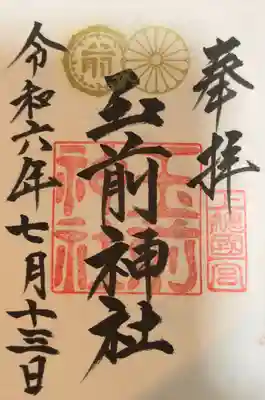 奉拝
上総一宮
玉前神社
玉前神社
令和六年七月十三日